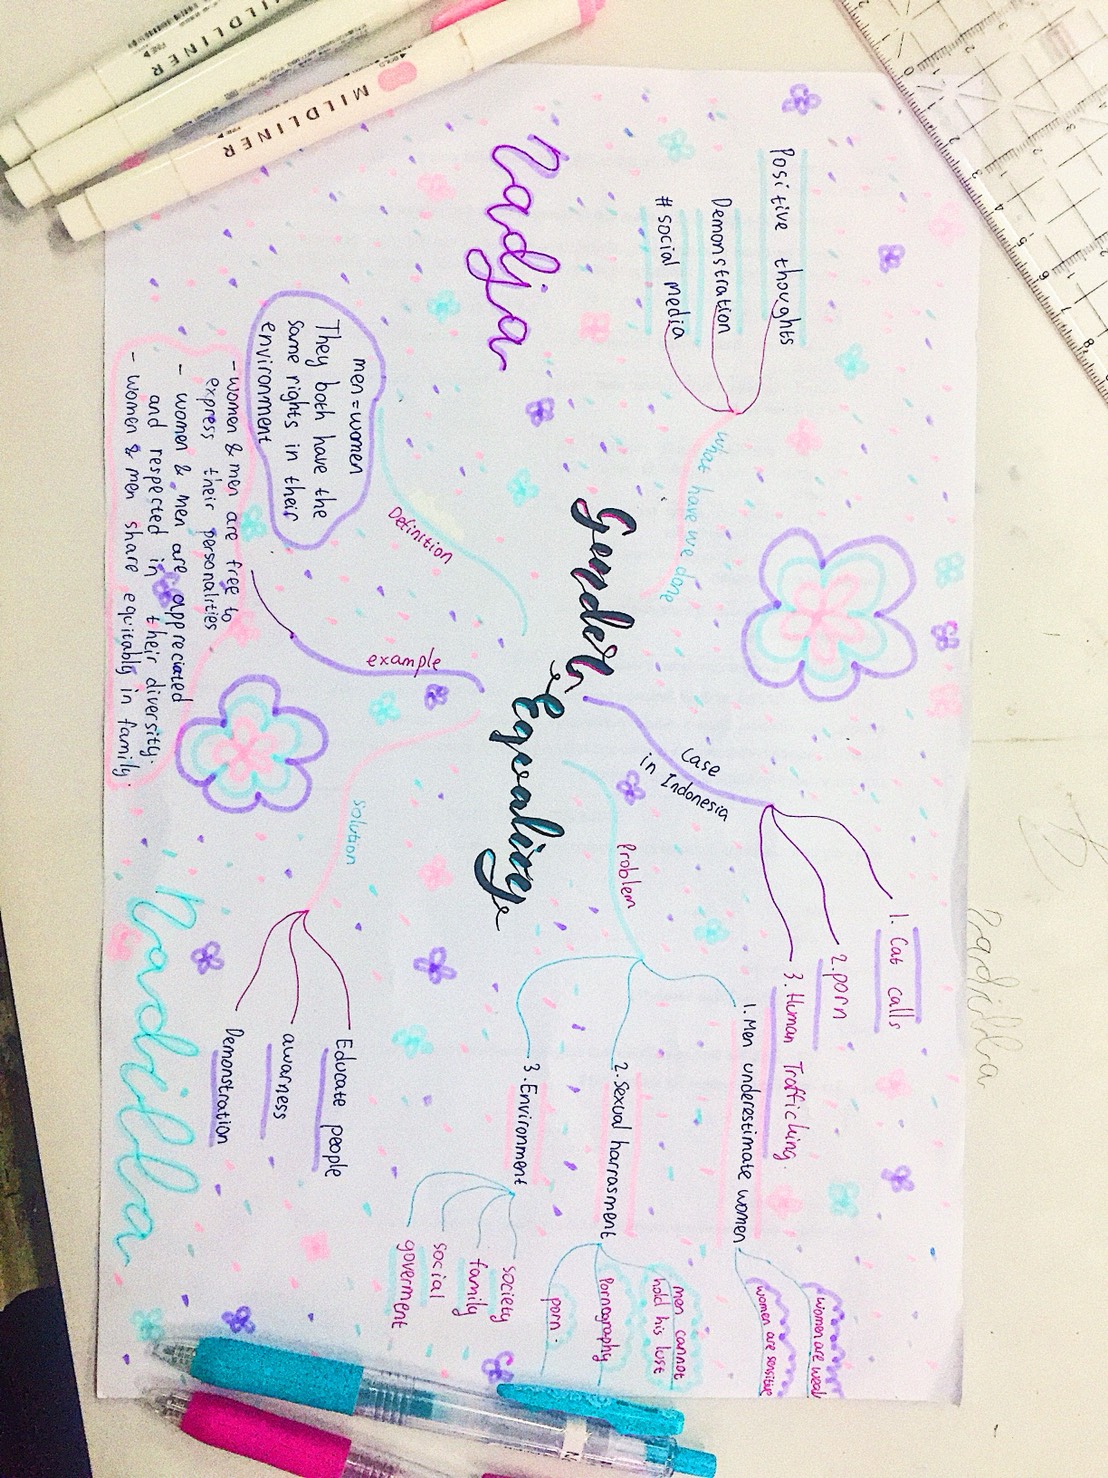 MILDLINER
MILDLINER
Nadja
Positive thoughts
Demonstration
# social media
what have we done
Gender
Equality
Definition
men = women
They both have the
same rights in their
environment
example
- women & men are free to
express their personalities
- women & men are appreciated
and respected in their diversity.
- women & men share equitably in family.
Case
in Indonesia
1. Cat calls
2. porn
3. Human Trafficking.
Problem
1. Men underestimate women
women are weak
women are sensitive
2. Sexual harrasment
men cannot
hold his lust
Pornography
porn.
3. Environment
society
family
social
goverment
solution
Educate people
awarness
Demonstration
Nadilla
nadilla
0 1 2 3 4 5 6 7 8